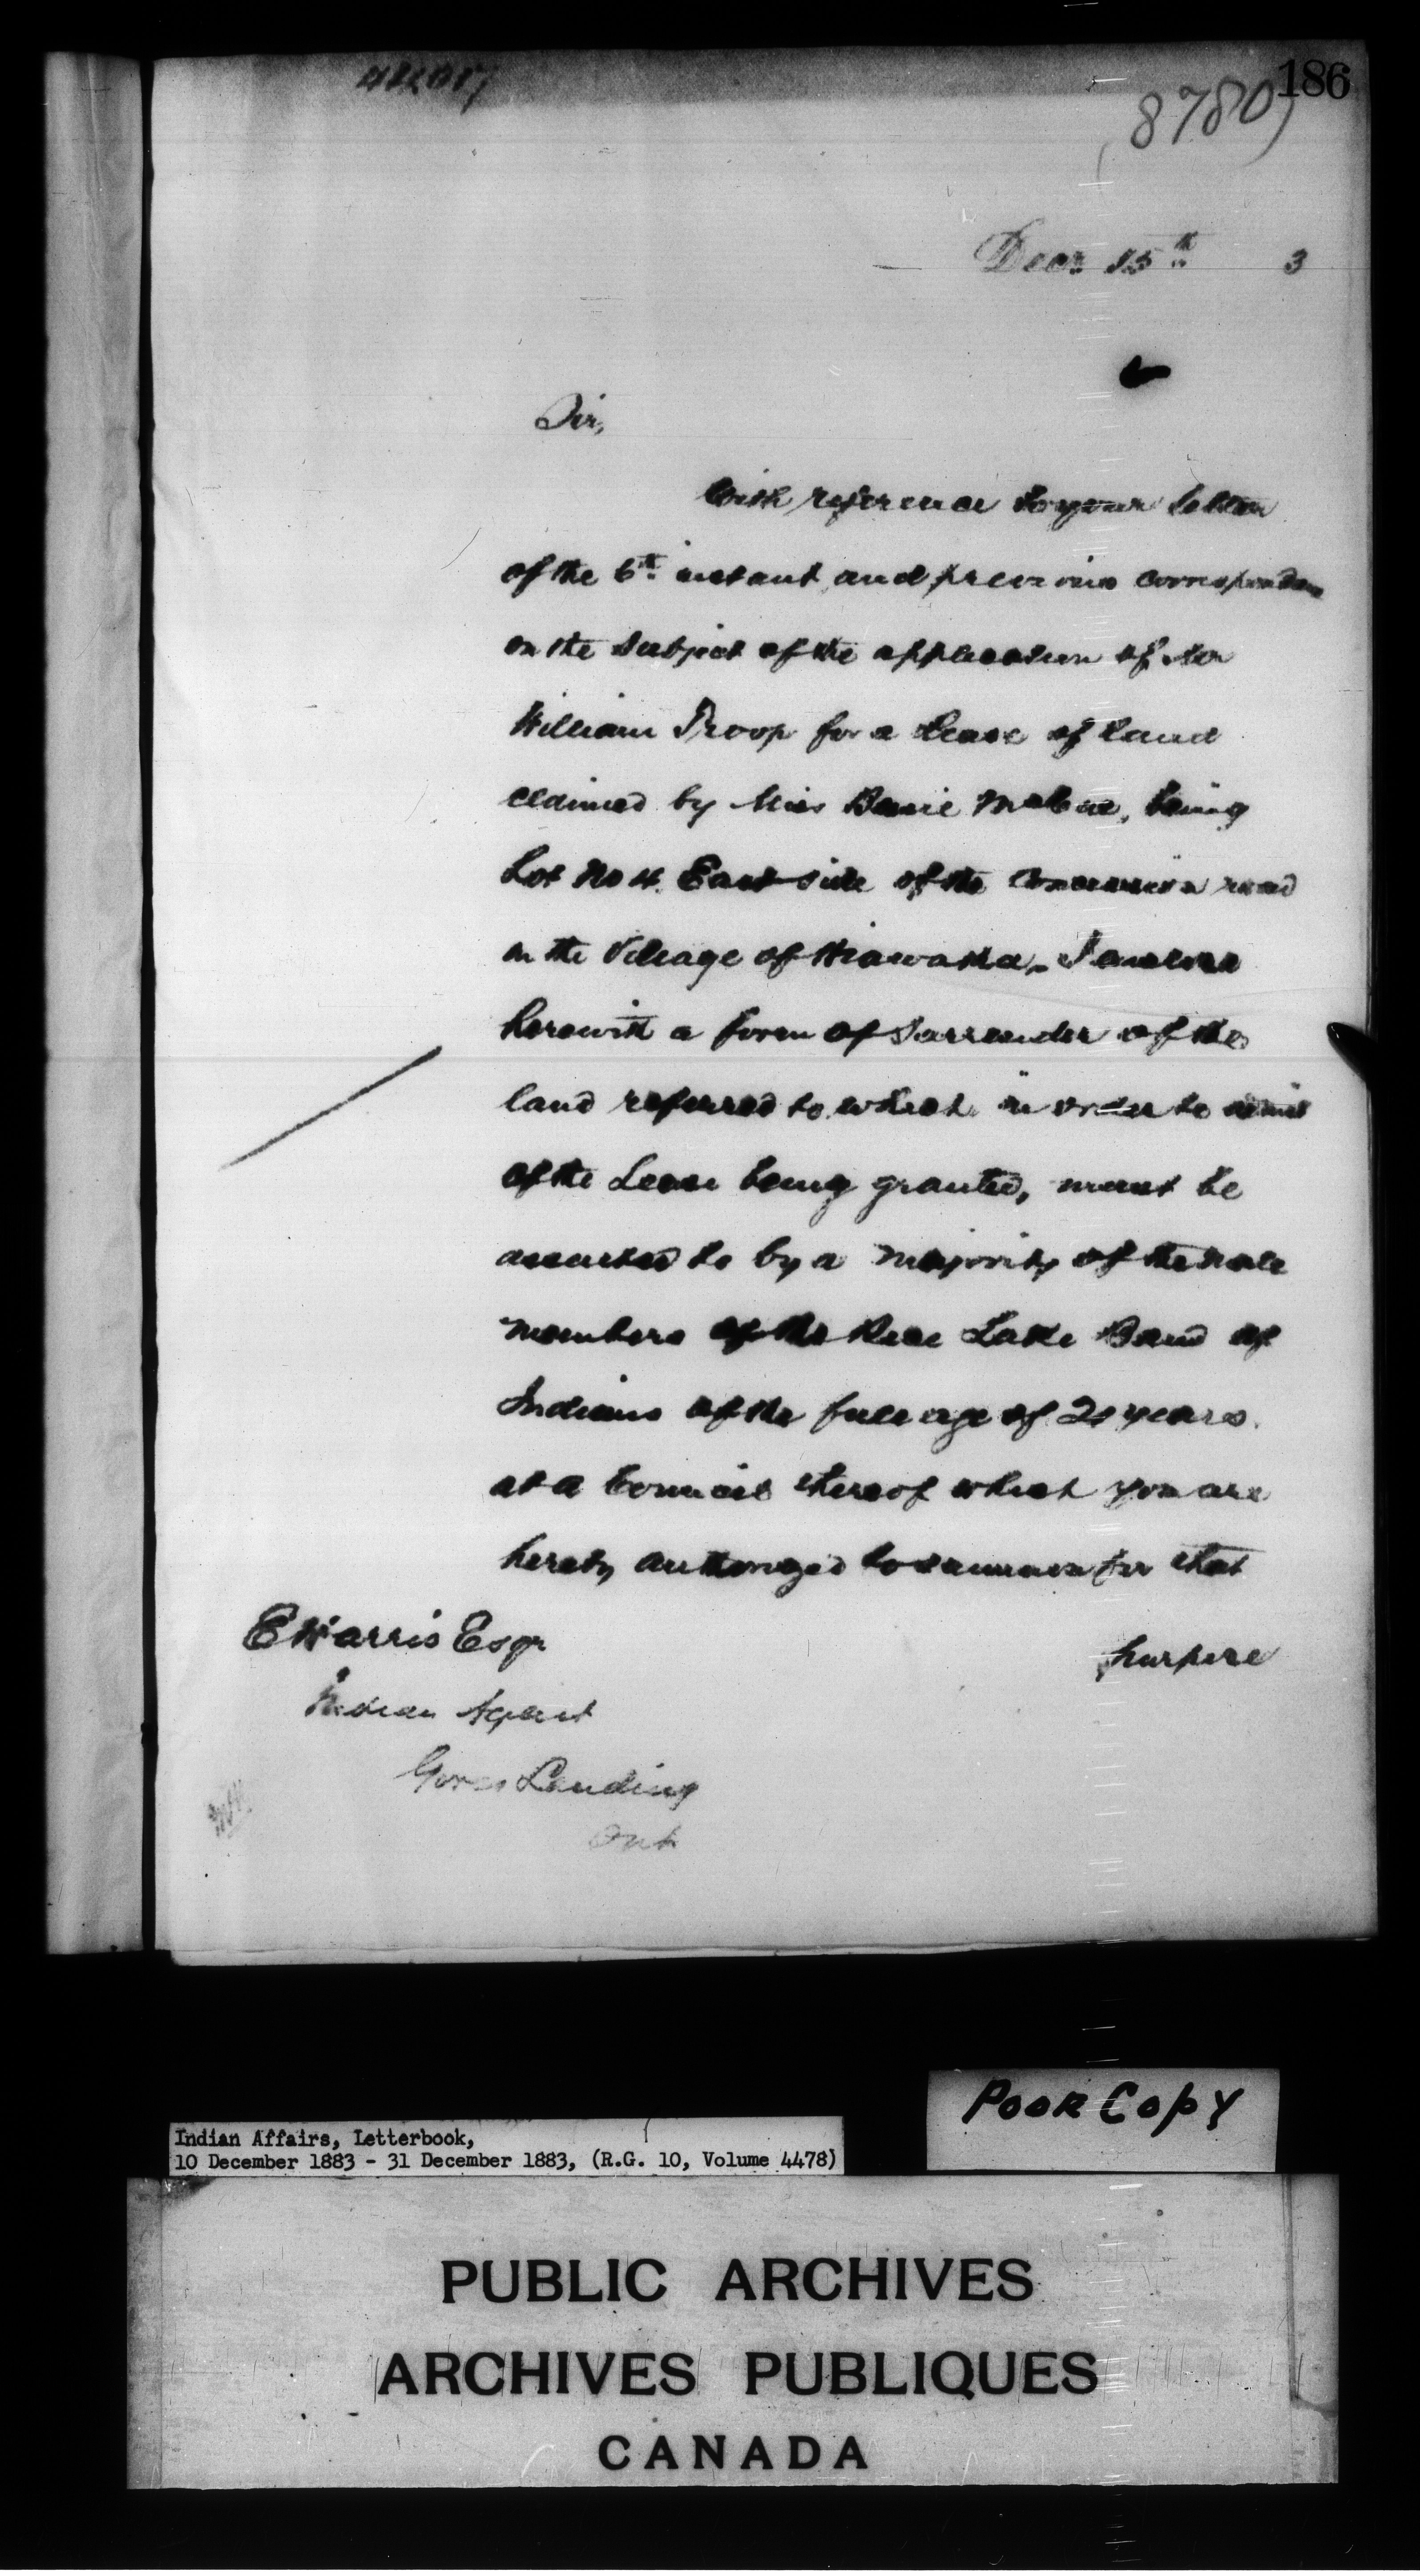 186
8780
Decr 15th 3
Sir,
With reference to your letter
of the 6th instant and previous correspondence
on the subject of the application of Mr
William Throop for a Lease of land
claimed by Miss McCue, being
Lot No 4 East side of the Concession road
in the Village of Hiawatha, I enclose
herewith a form of Surrender of the
land referred to which in order to admit
of the Lease being granted, must be
assented to by a majority of the male
members of the Rice Lake Band of
Indians of the full age of 21 years
at a Council thereof which you are
hereby authorized to summon for that
purpose
E Harris Esqr
Indian Agent
Gores Landing
Ont
Poor Copy
Indian Affairs, Letterbook,
10 December 1883 - 31 December 1883, (R.G. 10, Volume 4478)
PUBLIC ARCHIVES
ARCHIVES PUBLIQUES
CANADA